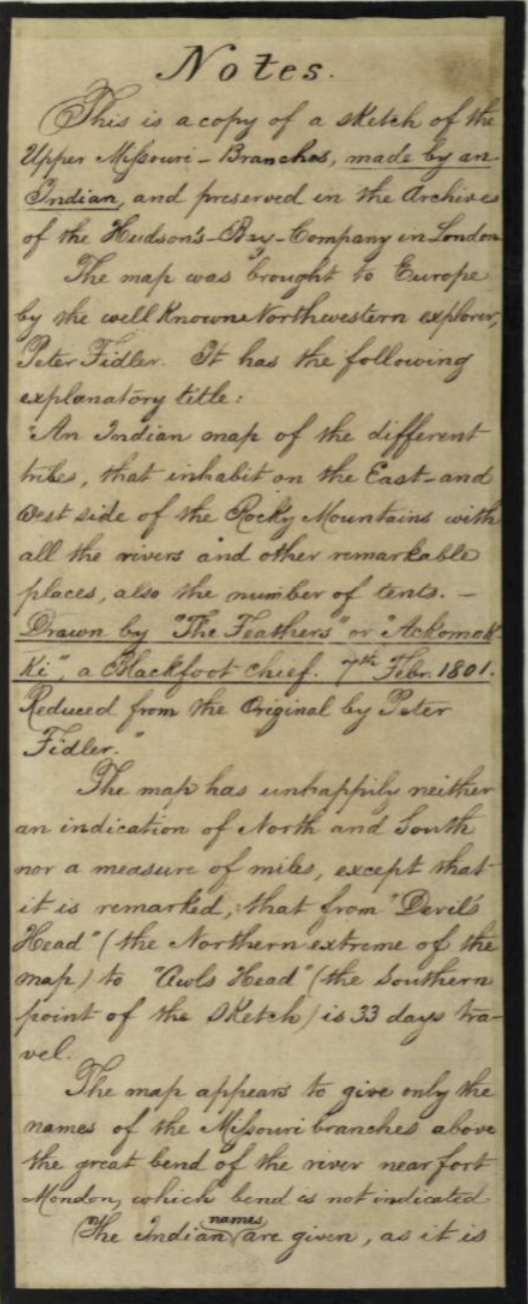 Notes.
This is a copy of a sketch of the
Upper Missouri-Branches, made by an
Indian, and preserved in the Archives
of the Hudson's-Bay-Company in London
The map was brought to Europe
by the well Knowne Northwestern explorer,
Peter Fidler. It has the following
explanatory title:
"An Indian map of the different
tribes, that inhabit on the East-and
West side of the Rocky Mountains with
all the rivers and other remarkable
places, also the number of tents. —
Drawn by "The Feathers" or "Ackomok-
Ki", a Blackfoot chief. 7th Febr. 1801.
Reduced from the Original by Peter
Fidler."
The map has unhappily neither
an indication of North and South
nor a measure of miles, except that
it is remarked, that from "Devil's
Head" (the Northern extreme of the
map) to "Owls Head" (the Southern
point of the sketch) is 33 days tra-
vel.
The map appears to give only the
names of the Missouri branches above
the great bend of the river near fort
Mondon, which bend is not indicated
The Indian names are given, as it is